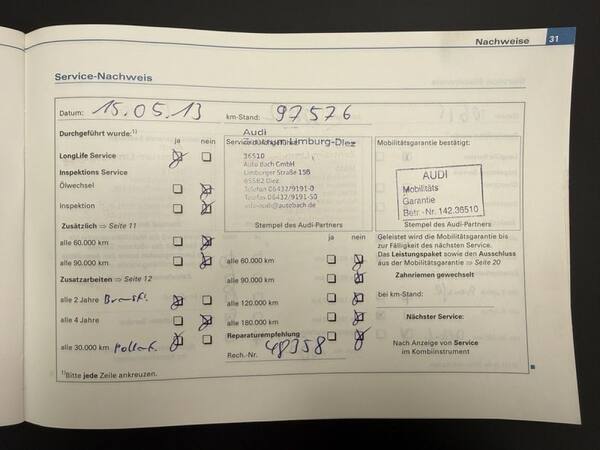 Nachweise 31
Service-Nachweis
Datum: 15.05.13 km-Stand: 97576
Durchgeführt wurde:¹⁾
ja nein
LongLife Service
Inspektions Service
Ölwechsel
Inspektion
Zusätzlich ⇒ Seite 11
alle 60.000 km
alle 90.000 km
Zusatzarbeiten ⇒ Seite 12
alle 2 Jahre
alle 4 Jahre
alle 30.000 km
¹⁾Bitte jede Zeile ankreuzen.
Audi
Limburg-Diez
36510
Auto Bach GmbH
Limburger Straße 158
65582 Diez
Telefon 06432/9191-0
Telefax 06432/9191-50
info-audi@autobach.de
Stempel des Audi-Partners
ja nein
alle 60.000 km
alle 90.000 km
alle 120.000 km
alle 180.000 km
Reparaturempfehlung
Rech.-Nr. 48358
Mobilitätsgarantie bestätigt:
AUDI
Mobilitäts
Garantie
Betr.-Nr. 142.36510
Stempel des Audi-Partners
Geleistet wird die Mobilitätsgarantie bis
zur Fälligkeit des nächsten Service.
Das Leistungspaket sowie den Ausschluss
aus der Mobilitätsgarantie ⇒ Seite 20
Zahnriemen gewechselt
bei km-Stand:
Nächster Service:
Nach Anzeige von Service
im Kombiinstrument